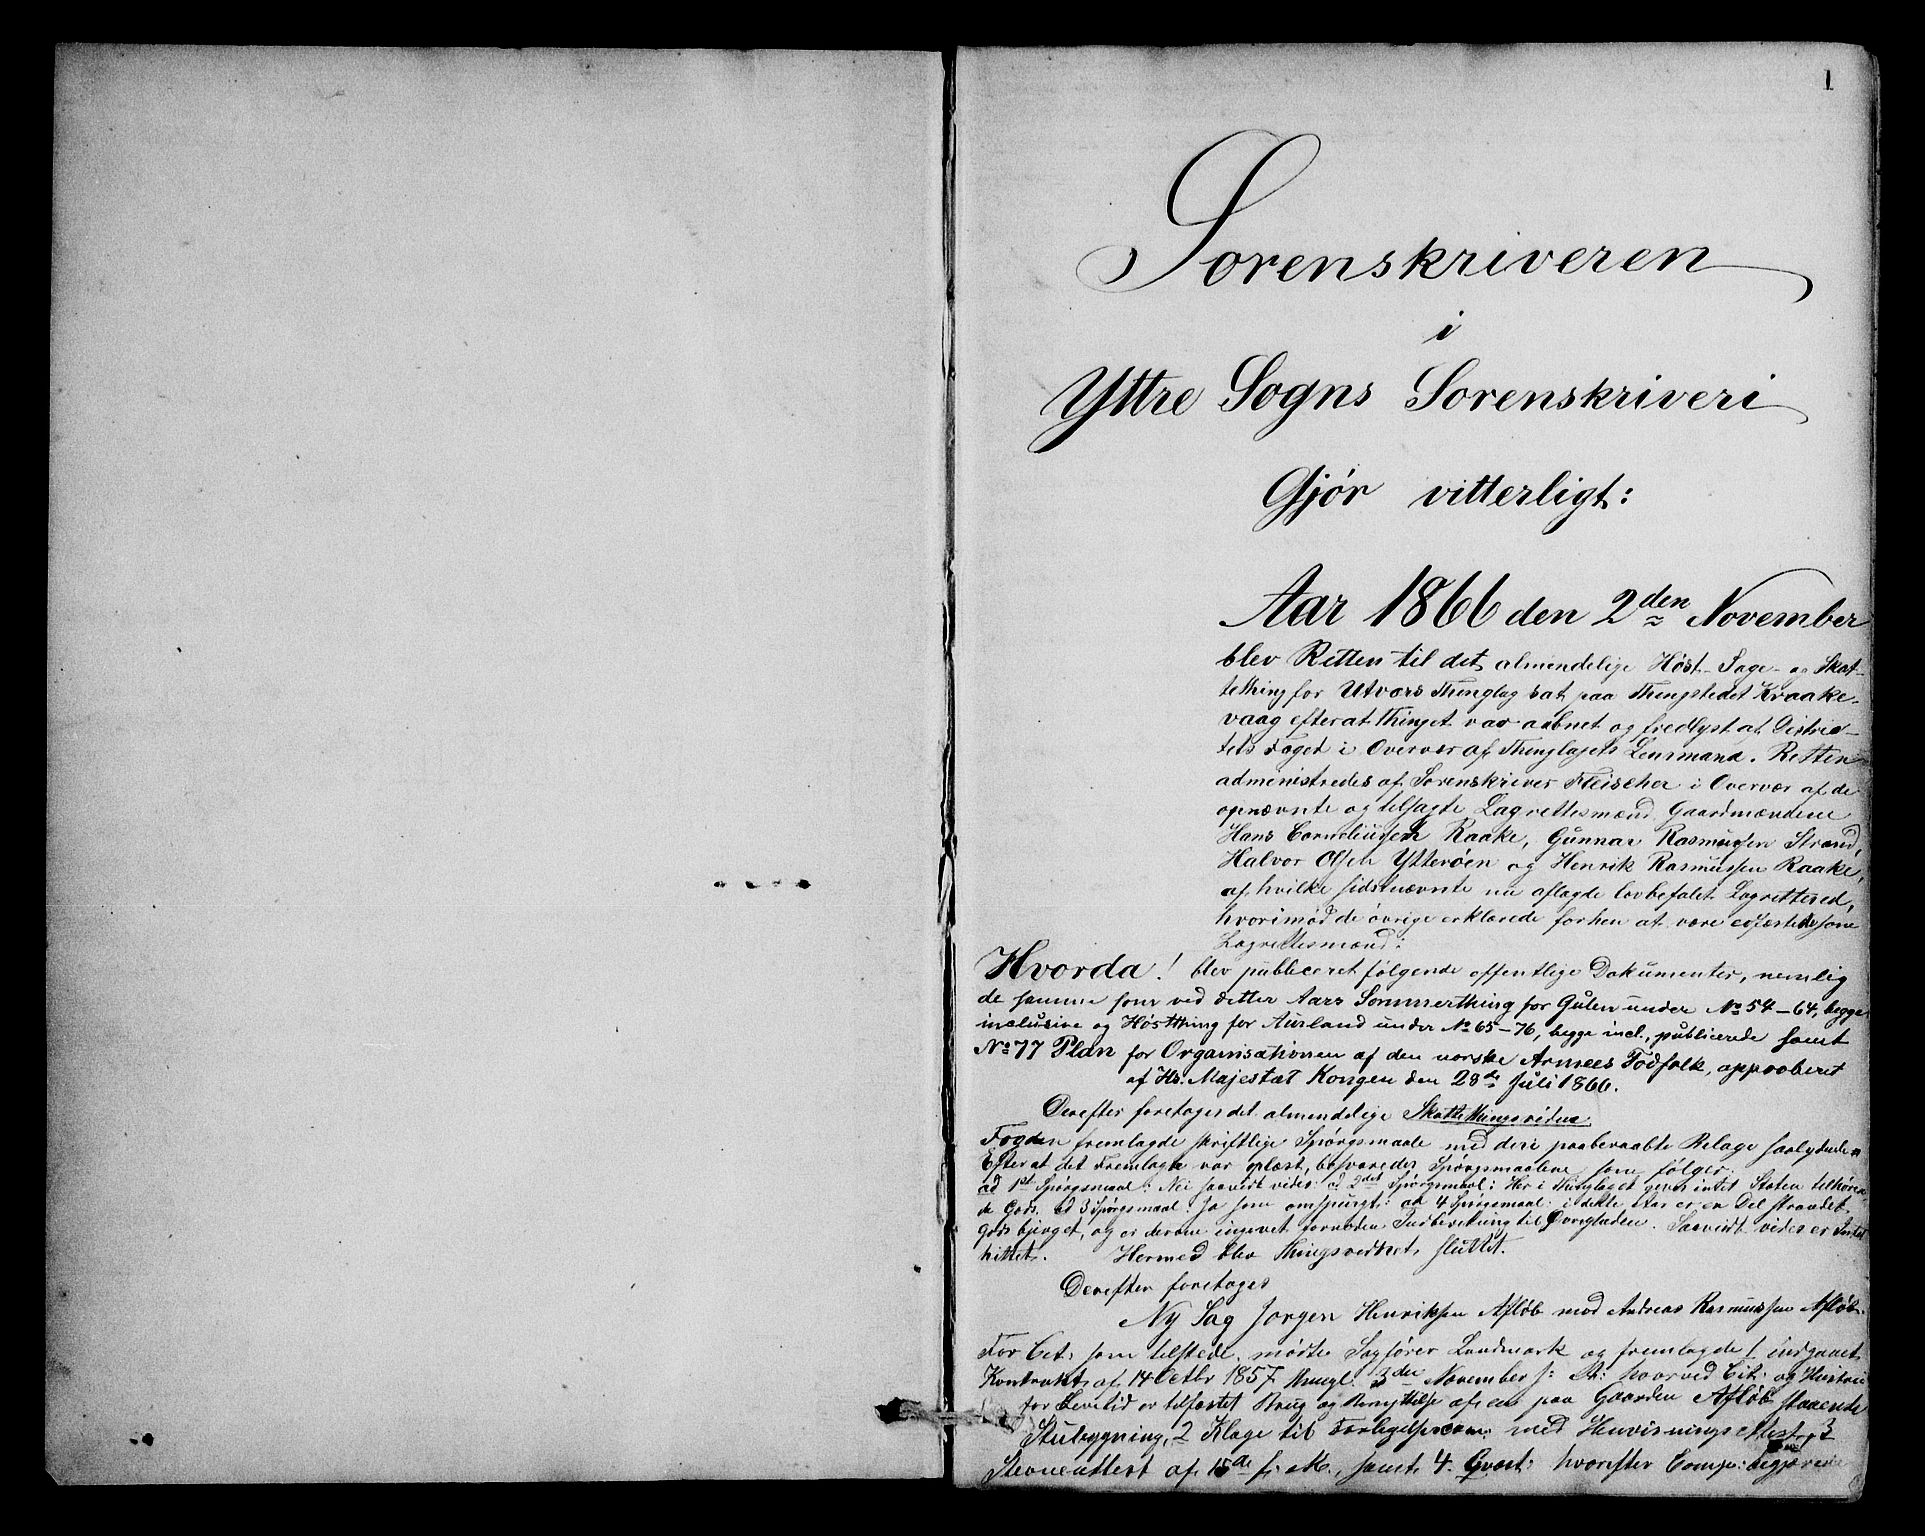 1
Sorenskriveren
i
Yttre Sogns Sorenskriveri
Gjør vitterligt:
Aar 1866 den 2den November
blev Retten til det almindelige Høst- Sage- og Skat-
tething for Utvær Thinglag sat paa Thingstedet Kraake-
vaag efterat Thinget var aabnet og fredlyst af Distric-
tets Foged i Overvær af Thinglagets Lensmand. Retten
administredes af Sorenskriver Fleischer i Overvær af de
opnævnte og tilsagte Lagrettesmænd Gaardmændene
Hans Corneliussen Raake, Gunnar Rasmussen Strand,
Halvor Olsen Ytterøen og Henrik Rasmussen Raake,
af hvilke sidstnævnte nu aflagde lovbefalet Lagretteed,
hvorimod de øvrige erklærede forhen at være edfæstede som
Lagrettesmænd:
Hvorda! blev publiceret følgende offentlige Dokumenter, nemlig
de samme som ved dette Aars Sommerthing for Gulen under No 54-64, begge
inclusive og Høstthing for Aurland under No 65-76, begge incl., publicerede samt
No 77 Plan for Organisationen af den norske Armees Fodfolk, approberet
af Hs. Majestæt Kongen den 28de Juli 1866.
Derefter foretoges det almindelige Skattethingsvidne.
Fogden fremlagde skriftlige Spørgsmaale med deri paaberaabte Bilage saalydende
Efterat det Fremlagte var oplæst, besvaredes Spørgsmaalene som følger:
ad 1st Spørgsmaal: Nei saavidt vides: ad 2det Spørgsmaal: Her i Thinglaget gives intet Staten tilhøren-
de Gods. ad 3 Spørgsmaal: Ja som omspurgt: ad 4 Spørgsmaal: i dette Aar er en Del strandet
Gods bjerget, og er derom ingivet fornøden Indberetning til Øvrigheden. Saavidt vides er Intet
hittet. Hermed blev Thingsvidnet sluttet.
Derefter foretoges
Ny Sag Jørgen Henriksen Afløb mod Andreas Rasmussen Afløb.
For Cit: som tilstede mødte Sagfører Landmark og fremlagde 1 indgaaet
Kontrakt af 14 Octbr 1857 thingl. 3die November s: A: hvorved Cit: og Hustru
for Levetid er tilfæstet Brug og Benyttelse af en paa Gaarden Afløb staaende
Stubygning, 2 Klage til Forligelsescom: med Henvisningsattest, 3
Stevneattest af 15de f: M., samt 4. Qvæst: hvorefter Comp: begjærede